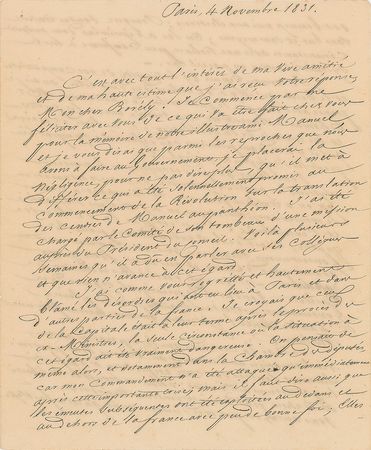 Paris, 4 Novembre 1831.
C'est avec tout l'intérêt de ma vive amitié
et de ma haute estime que j'ai reçu votre réponse,
Mon cher Borély. Je commence par me
féliciter avec vous de ce qui va être fait chez vous
pour la mémoire de notre illustre ami Manuel
et je vous dirai que parmi les reproches que nous
avons à faire au Gouvernement je placerai la
Négligence, pour ne pas dire plus, qu'il met à
différer ce qui a été solennellement promis au
Commencement de la Révolution sur la translation
des cendres de Manuel au panthéon. J'ai été
chargé par le Comité de son tombeau d'une mission
auprès du Président du Conseil. Voilà plusieurs
Semaines qu'il a dû en parler avec ses Collègues
et que rien n'avance à cet égard.
J'ai comme vous regretté et hautement
blâmé les désordres qui ont eu lieu à Paris et dans
d'autres parties de la france. Je croyais que ceux
de la Capitale était à leur terme après le procès des
ex-Ministres, la seule circonstance où la situation à
cet égard ait été vraiment dangereuse. On pensait de
même alors, et notamment dans la Chambre des députés
car mon Commandement n'a été attaqué qu'immédiatement
après cette importante crise, mais il faut dire aussi que
les émeutes subséquentes ont été exploitées au dedans et
au dehors de la france avec peu de bonne foi; Elles